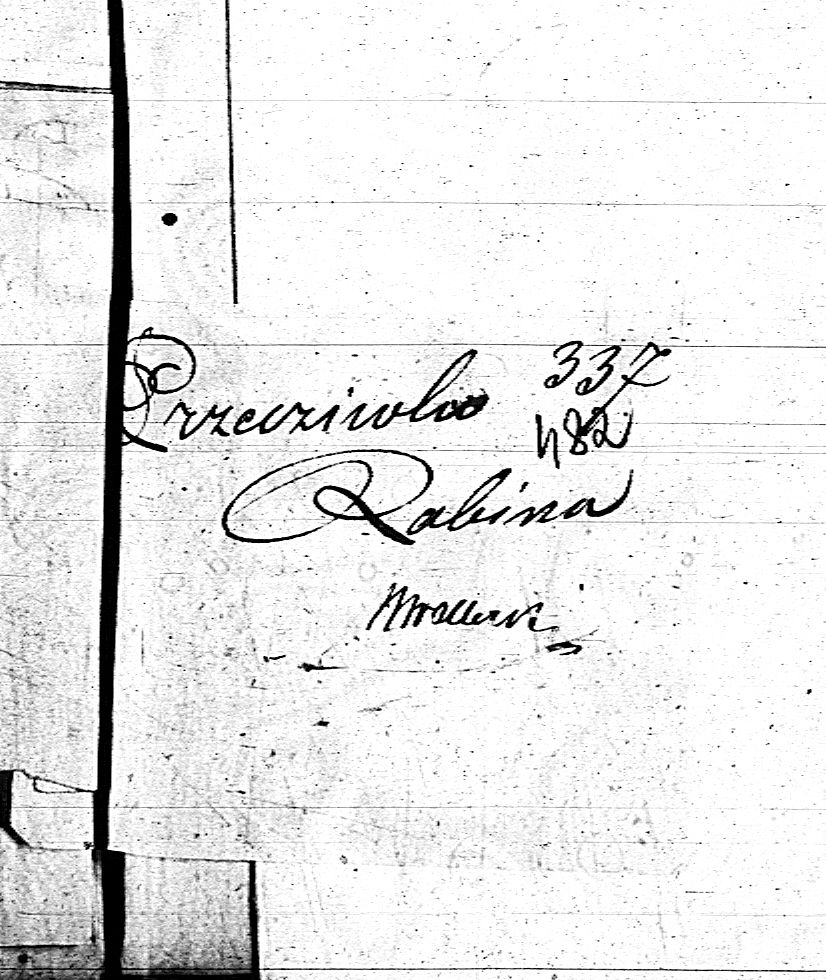 Przeciwko 337
482
Rabina